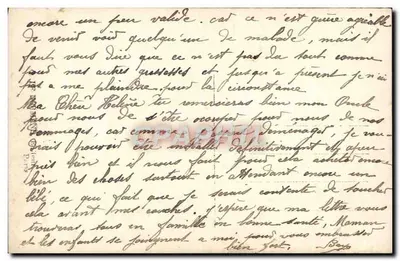 encore un peu valide. car ce n'est guère agréable
de venir voir quelqu'un de malade, mais il
faut vous dire que ce n'est pas du tout comme
pour mes autres grossesses et jusqu'à présent je n'ai
pas a me plaindre pour la circonstance
Ma Chère Helène tu remercieras bien mon Oncle
pour nous de s'être occupé pour nous de nos
dommages, car comme nous je vou
drais pouvoir être installé définitivement
près bien et il nous faut pour cela acheter encore
bien des choses surtout en attendant encore un
bébé, ce qui fait que je serais contente de toucher
cela avant mes couches. j'espère que ma lettre vous
trouvera tous en famille en bonne santé, Maman
et les enfants se joignent a moi pour vous embrasser
bien fort.